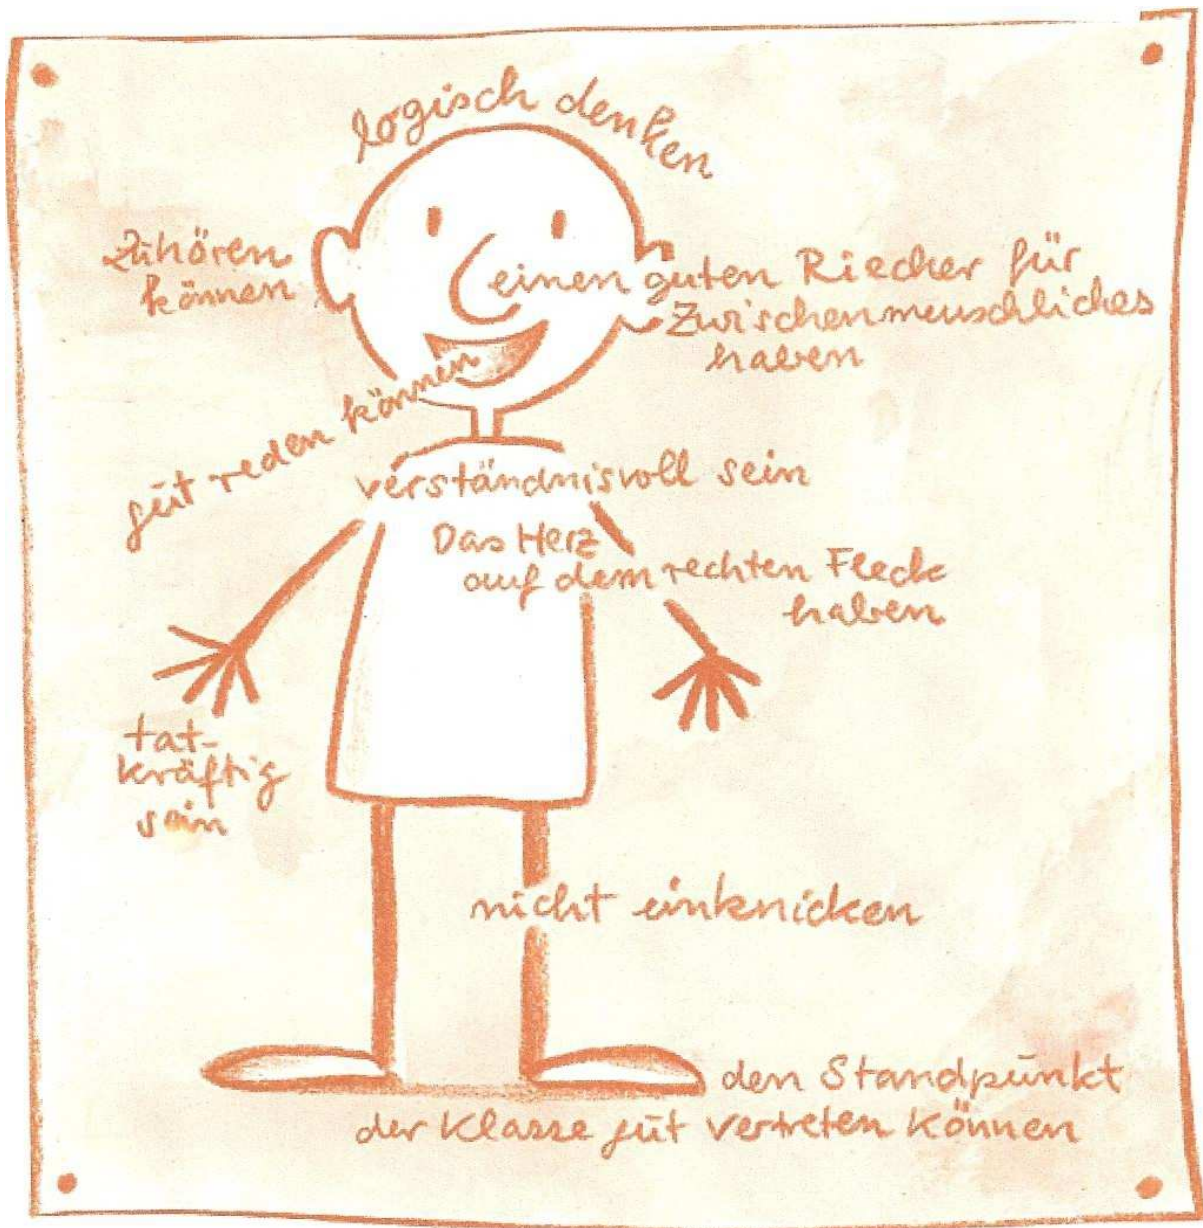 logisch denken
Zuhören
können
einen guten Riecher für
Zwischenmenschliches
haben
gut reden können
verständnisvoll sein
Das Herz
auf dem rechten Fleck
haben
tat-
kräftig
sein
nicht einknicken
den Standpunkt
der Klasse gut vertreten können